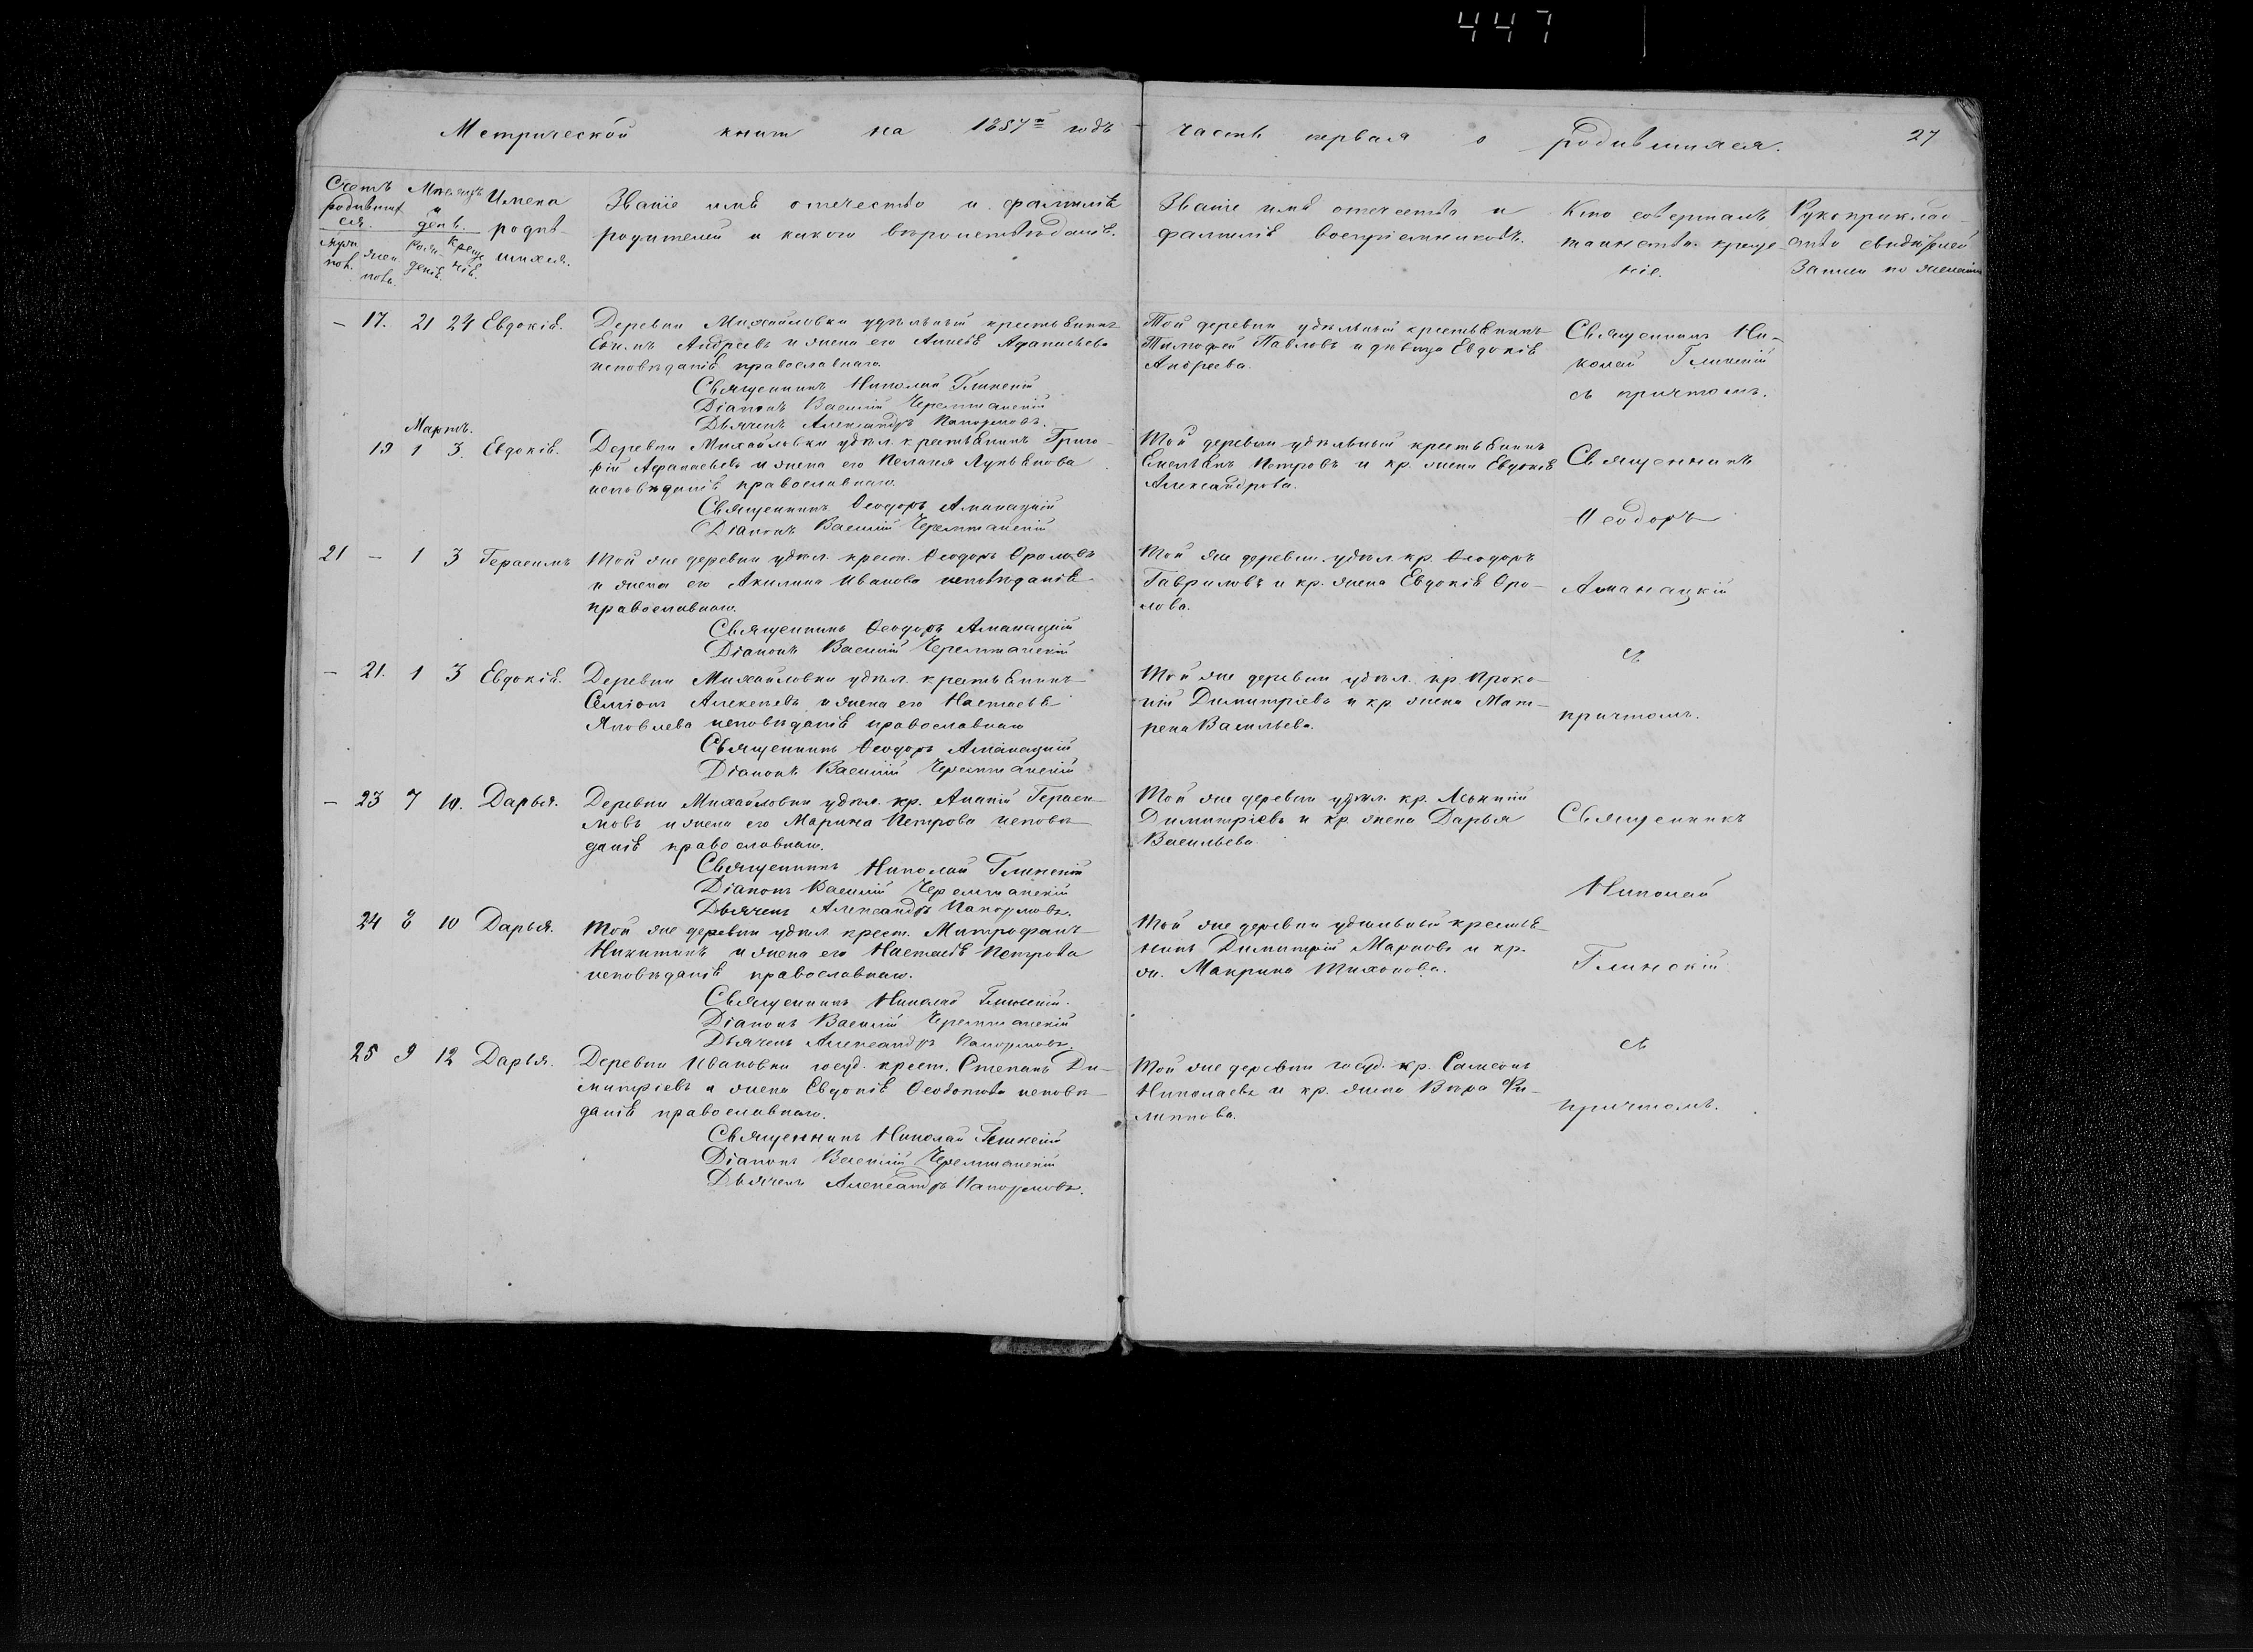 447
Метрической книги на 1857й годъ
часть первая о родившихся.
27
Счетъ родившихся.
мужеск. пола.
женск. пола.
Мѣсяцъ и день.
рожденія.
крещенія.
Имена родившихся.
Званіе имя отечество и фамилія
родителей и какого вѣроисповѣданія.
Званіе имя отечество и
фамилія воспріемниковъ.
Кто совершалъ
таинство креще-
нія.
Рукоприклад-
ство свидѣтелей
записи по желанію
— 17. 21 24 Евдокія.
Деревни Михайловки удѣльный крестьянинъ
Андреевъ и жена его Афанасьева
исповѣданія православнаго.
Священникъ Николай Глинскій
Діаконъ Василій Черемшанскій
Дьячекъ Александръ
Той деревни удѣльный крестьянинъ
Тимофей Павловъ и дѣвица Евдокія
Андреева.
Священникъ Ни-
колай Глинскій
съ причтомъ.
Мартъ.
19 1 3. Евдокія.
Деревни Михайловки удѣл. крестьянинъ Григо-
рій Афанасьевъ и жена его Пелагея Лукьянова
исповѣданія православнаго.
Священникъ Ѳеодоръ Аманацкій
Діаконъ Василій Черемшанскій
Той деревни удѣльный крестьянинъ
Емельянъ Петровъ и кр. жена Евдокія
Александрова.
Священникъ
Ѳеодоръ
21 — 1 3 Герасимъ
Той же деревни удѣл. крест. Ѳеодоръ Фроловъ
и жена его Акилина Иванова исповѣданія
православнаго.
Священникъ Ѳеодоръ Аманацкій
Діаконъ Василій Черемшанскій
Той же деревни удѣл. кр. Ѳеодоръ
Гавриловъ и кр. жена Евдокія Фро-
лова.
Аманацкій
съ
— 21. 1 3 Евдокія.
Деревни Михайловки удѣл. крестьянинъ
Семіонъ Алексѣевъ и жена его Настасья
Яковлева исповѣданія православнаго
Священникъ Ѳеодоръ Аманацкій
Діаконъ Василій Черемшанскій
Той же деревни удѣл. кр. Проко-
пій Димитріевъ и кр. жена Мат-
рена Васильева.
причтомъ.
— 23 7 10. Дарья.
Деревни Михайловки удѣл. кр. Ананій Гераси-
мовъ и жена его Марина Петрова исповѣ-
данія православнаго.
Священникъ Николай Глинскій
Діаконъ Василій Черемшанскій
Дьячекъ Александръ
Той же деревни удѣл. кр.
Димитріевъ и кр. жена Дарья
Васильева.
Священникъ
Николай
24 8 10 Дарья.
Той же деревни удѣл. крест. Митрофанъ
Никитинъ и жена его Настасія Петрова
исповѣданія православнаго.
Священникъ Николай Глинскій.
Діаконъ Василій Черемшанскій
Дьячекъ Александръ
Той же деревни удѣльный крестья-
нинъ Димитрій Марковъ и кр.
ж. Макрина Тихонова.
Глинскій
съ
25 9 12 Дарья.
Деревни Ивановки госуд. крест. Степанъ Ди-
митріевъ и жена Евдокія Ѳеодотова исповѣ-
данія православнаго.
Священникъ Николай Глинскій
Діаконъ Василій Черемшанскій
Дьячекъ Александръ
Той же деревни госуд. кр. Самсонъ
Николаевъ и кр. жена Вѣра Фи-
липпова.
причтомъ.